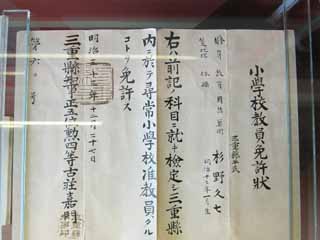 小學校教員免許狀
三重縣平民
杉野久七
右ハ前記ノ科目ニ就キ檢定シ三重縣
内ニ於テ尋常小學校准教員タル
コトヲ免許ス
明治三十二年十二月二十七日
三重縣知事正五位勲四等古莊嘉門